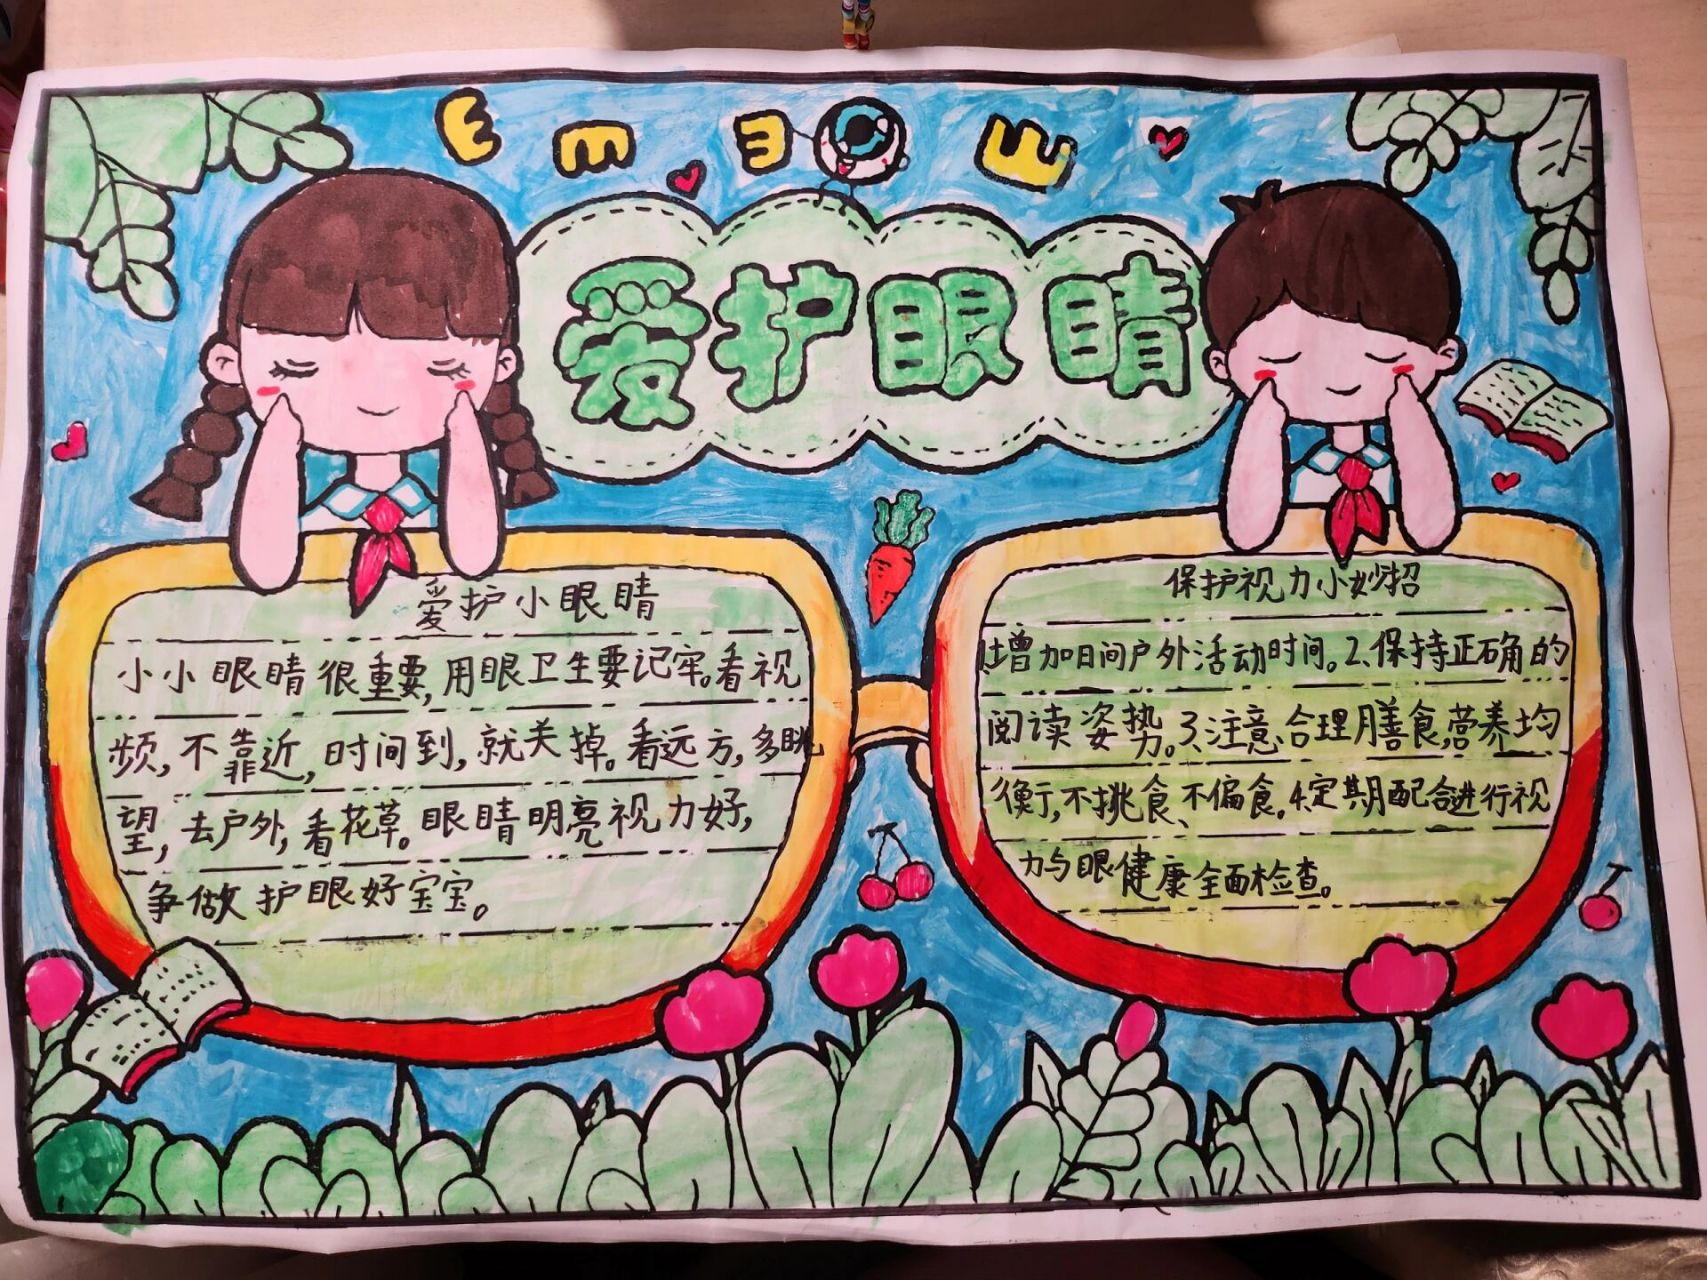 E m 3 Ш
爱护眼睛
爱护小眼睛
小小眼睛很重要,用眼卫生要记牢。看视
频,不靠近,时间到,就关掉。看远方,多眺
望,去户外,看花草。眼睛明亮视力好,
争做护眼好宝宝。
保护视力小妙招
1.增加日间户外活动时间。2、保持正确的
阅读姿势。3、注意、合理膳食,营养均
衡,不挑食、不偏食。4、定期配合进行视
力与眼健康全面检查。